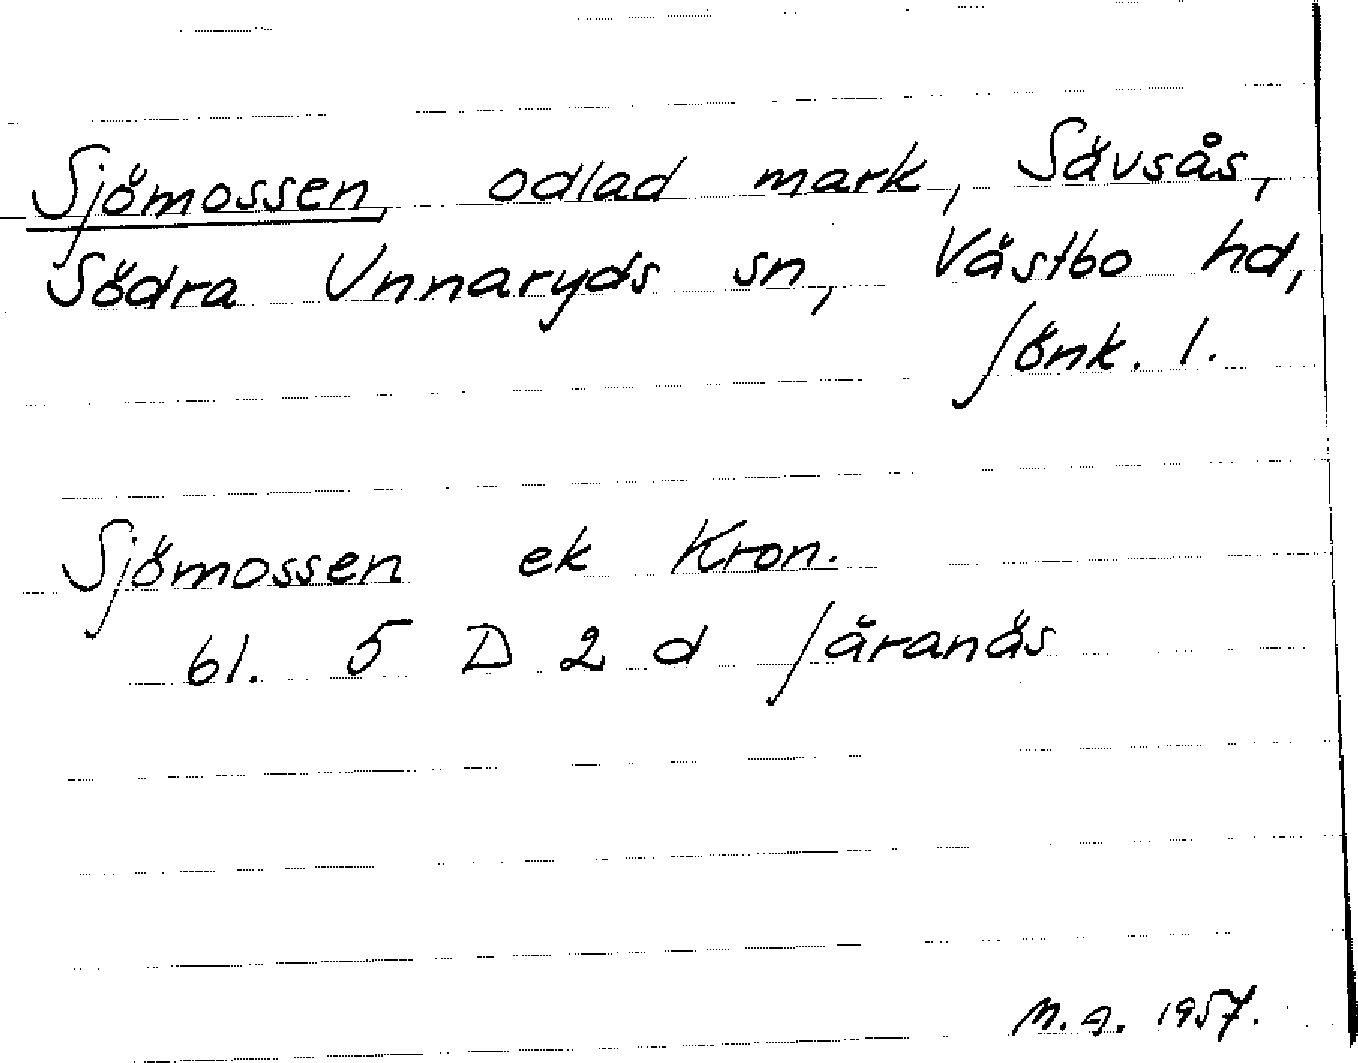 Sjömossen, odlad mark, Sävsås,
Södra Unnaryds sn, Västbo hd,
Jönk. l.
Sjömossen ek Kron.
bl. 5 D 2 d Järanäs
M.A. 1957.